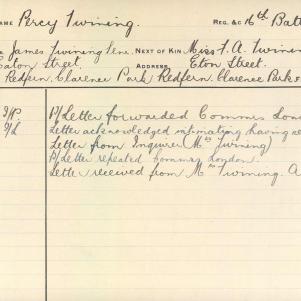 AME Percy Twining. REG. & C 16th Batt
James Twining Sene. NEXT OF KIN Miss F. A. Twinin
Eaton Street. ADDRESS Eton Street.
Redfern, Clarence Park Redfern, Clarence Park
P/Letter forwarded Commrs Lond
Letter acknowledged intimating having
Letter from Inquirer (Mrs Twining)
P/Letter repeated Commrs London.
Letter received from Mrs Twining. A